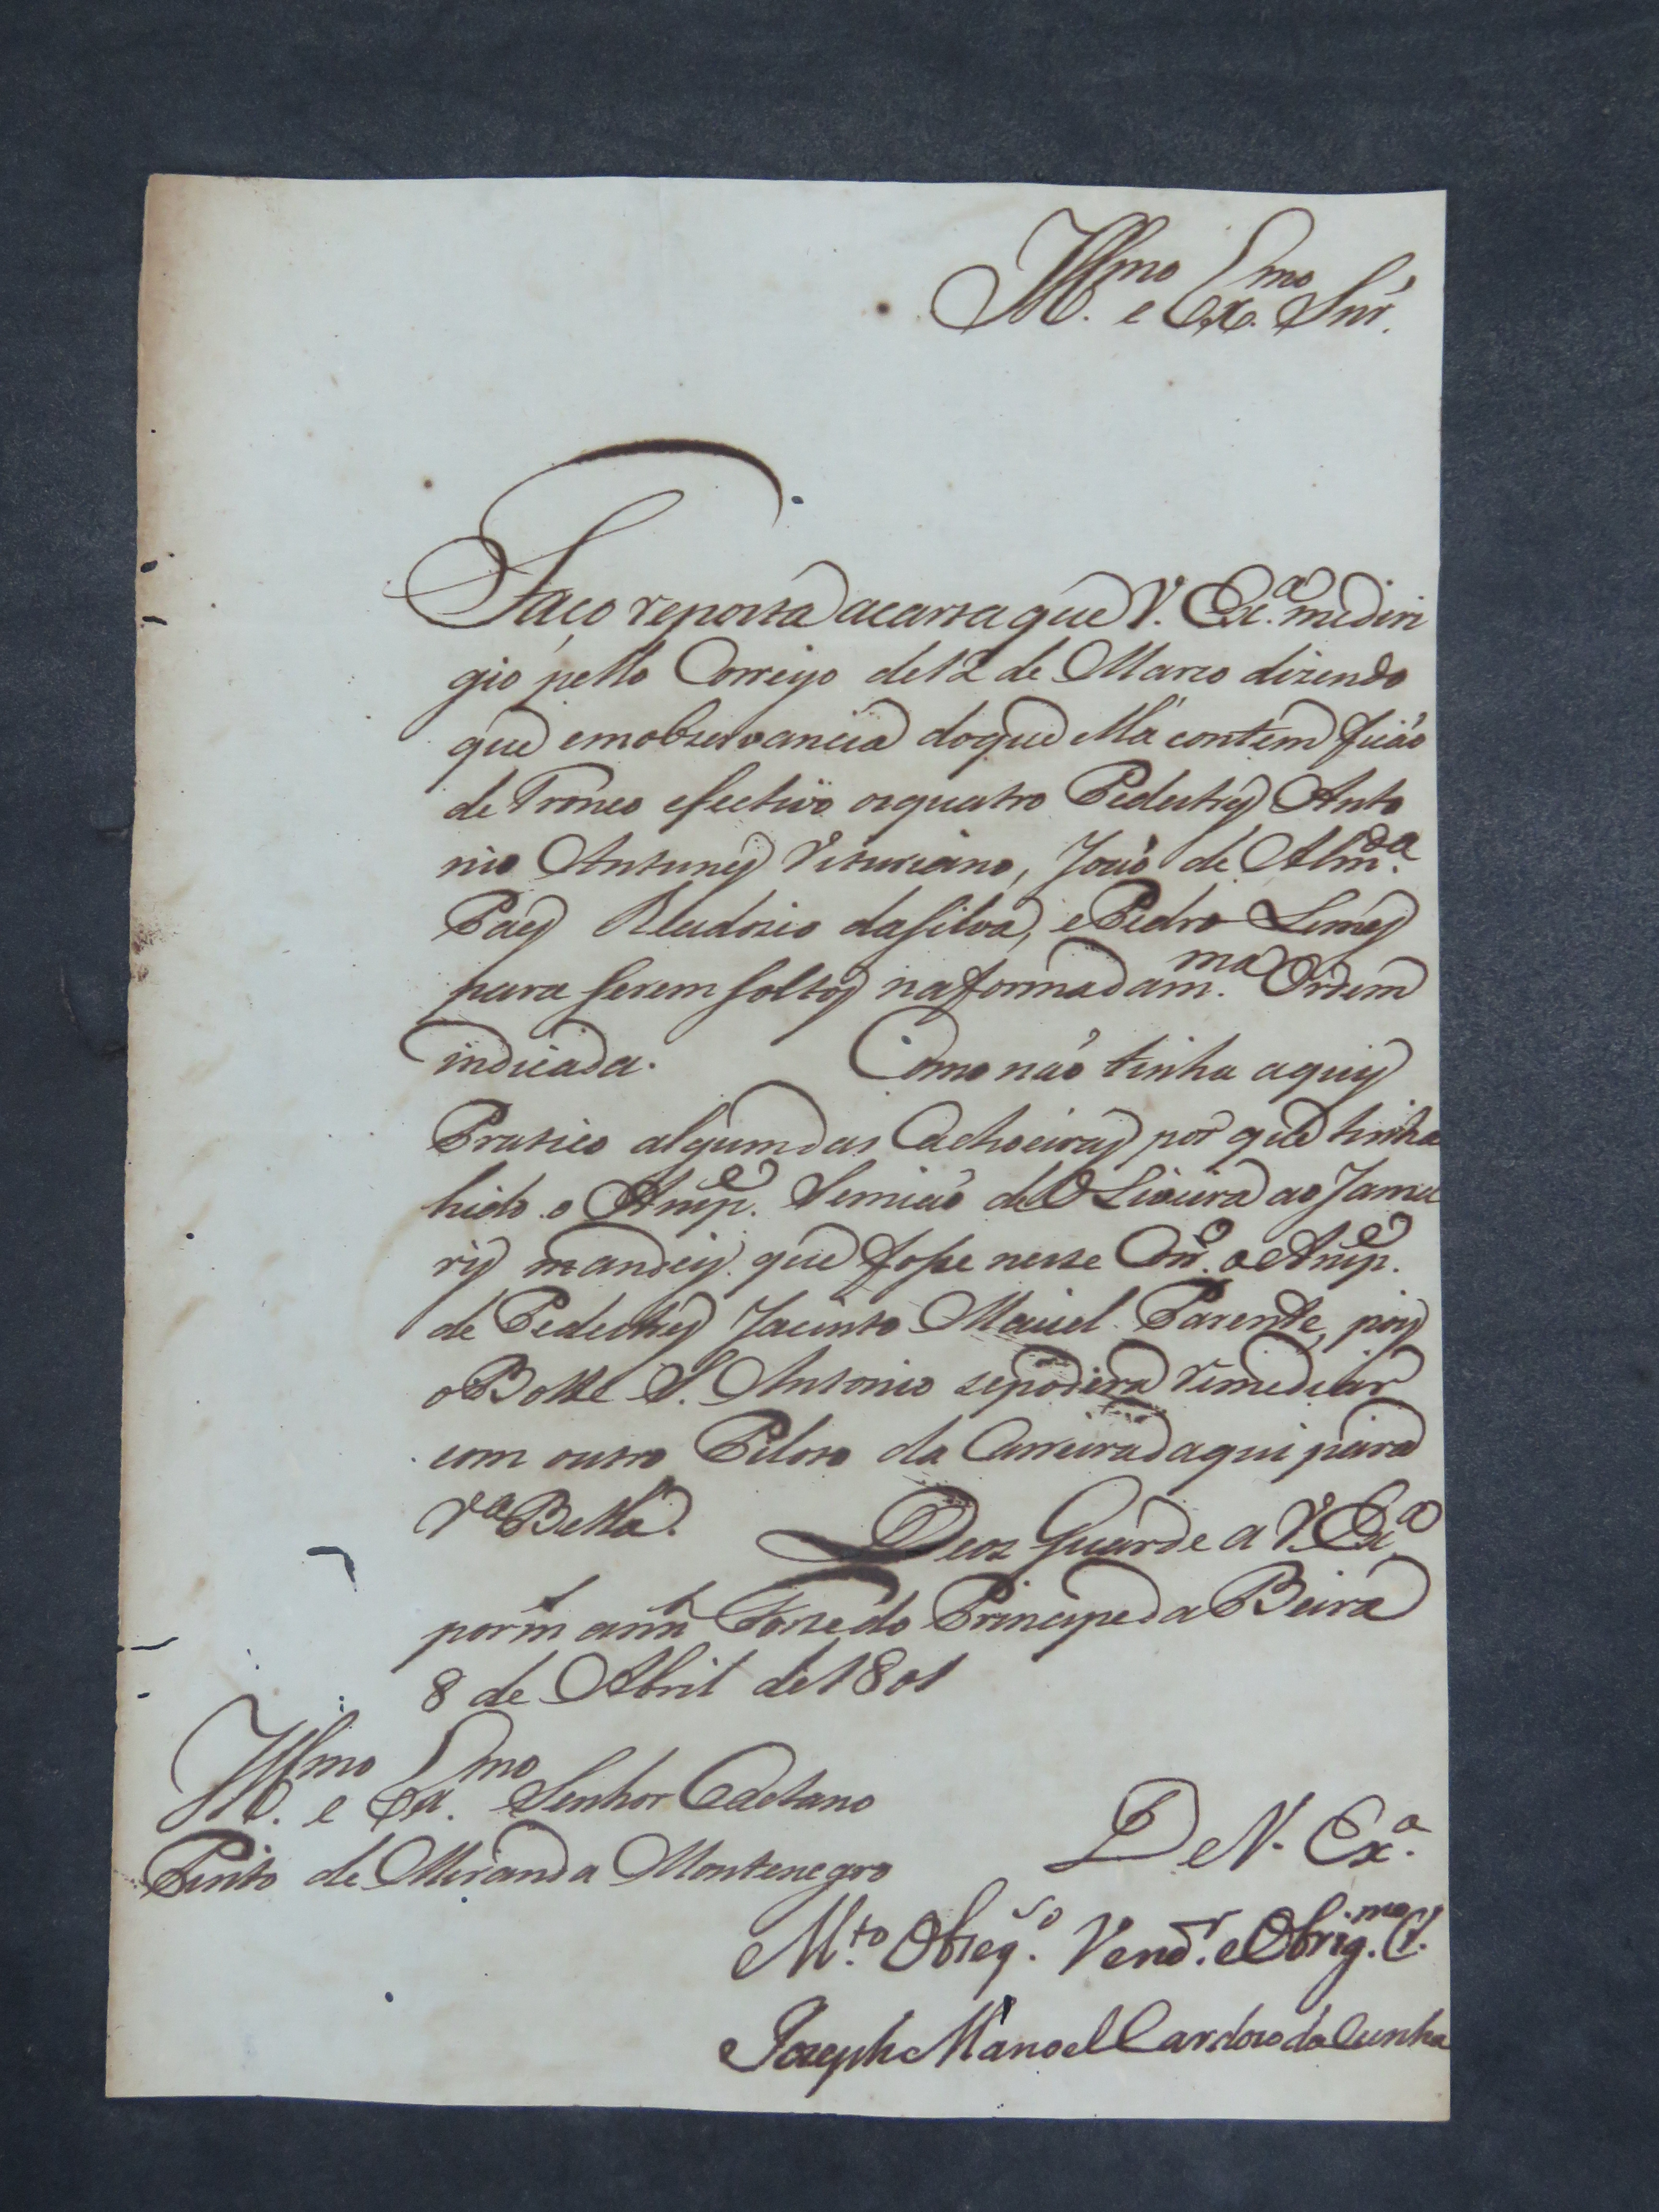 Ill.mo e Ex.mo Snr.
Faço reposta acarta que V. Ex.a mediri
gio pello Correyo de 12 de Marco dizendo
que emobzervancia doque ella contem ficáo
de Tronco efectivo os quatro Pedestres Anto
nio Antunes Vituriano, Joáo de Alm.da
Paes Eleudorio dasilva, e Pedro Lemes
para serem soltos na forma da m.ma Ordem
indicada. Como náo tinha aquy
Pratico algum das Cachoeiras por que tinha
hido o Ansp.e Semiáo de Oliveira ao Jama
ry mandey que fosse neste Com.o o Ansp.e
de Pedestres Jacinto Maciel Parente, poys
o Botte S. Antonio sepodera remediar
com outro Piloto da Carreira daqui para
V.a Bella. Deos Guarde a V. Ex.a
por m.s ann.s Forte do Principe da Beira
8 de Abril de 1801
Ill.mo e Ex.mo Senhor Caetano
Pinto de Miranda Montenegro
De V. Ex.a
M.to Obzeq.zo Vend.r e Obrig.mo C.
Jozeph Manoel Cardozo da Cunha